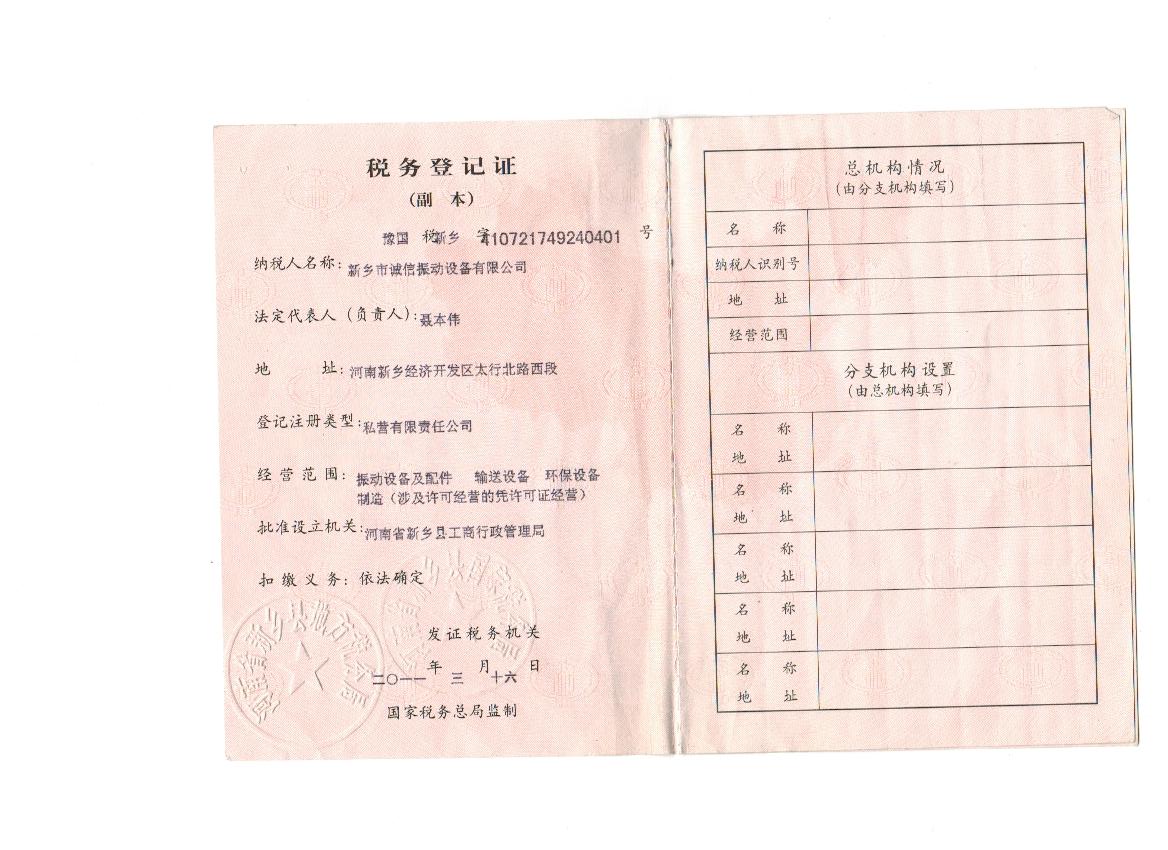 税务登记证
(副 本)
豫国 税 新乡 字 410721749240401 号
纳税人名称: 新乡市诚信振动设备有限公司
法定代表人(负责人): 聂本伟
地 址: 河南新乡经济开发区太行北路西段
登记注册类型: 私营有限责任公司
经营范围: 振动设备及配件 输送设备 环保设备
制造(涉及许可经营的凭许可证经营)
批准设立机关: 河南省新乡县工商行政管理局
扣缴义务: 依法确定
发证税务机关
二〇一一 年 三 月 十六 日
国家税务总局监制
河南省新乡县地方税务局
总机构情况
(由分支机构填写)
名 称
纳税人识别号
地 址
经营范围
分支机构设置
(由总机构填写)
名 称
地 址
名 称
地 址
名 称
地 址
名 称
地 址
名 称
地 址